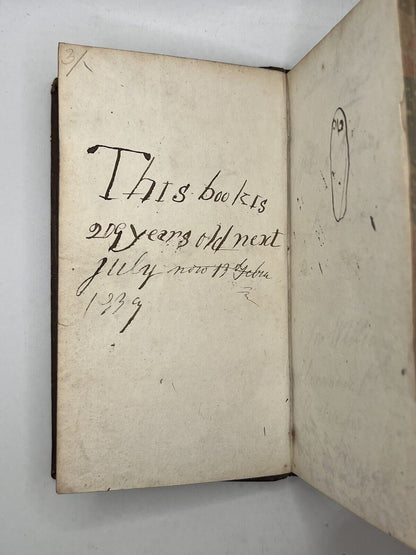 3/
This book is
209 years old next
July now 17 Febra
1839